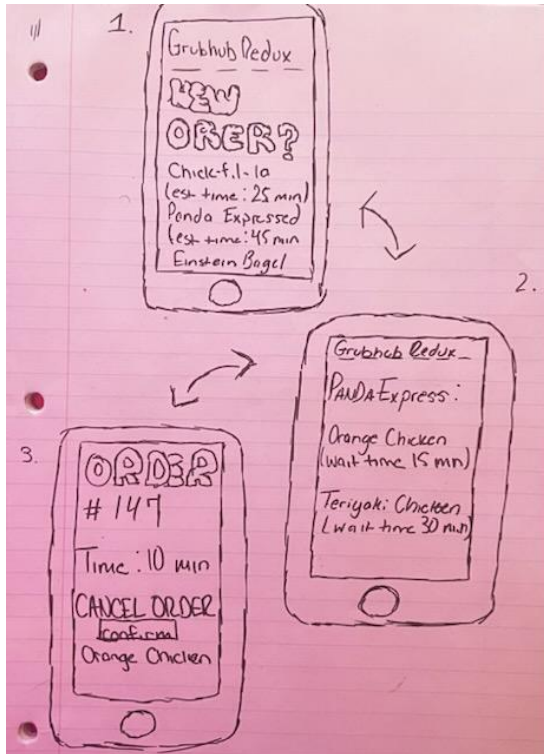 1.
Grubhub Redux
NEW
ORER?
Chick-fil-la
(est time: 25 min)
Panda Expressed
(est time: 45 min
Einstein Bagel
2.
Grubhub Redux
PANDA Express:
Orange Chicken
(wait time 15 min)
Teriyaki Chicken
(wait time 30 min)
3.
ORDER
# 147
Time: 10 min
CANCEL ORDER
confirm
Orange Chicken